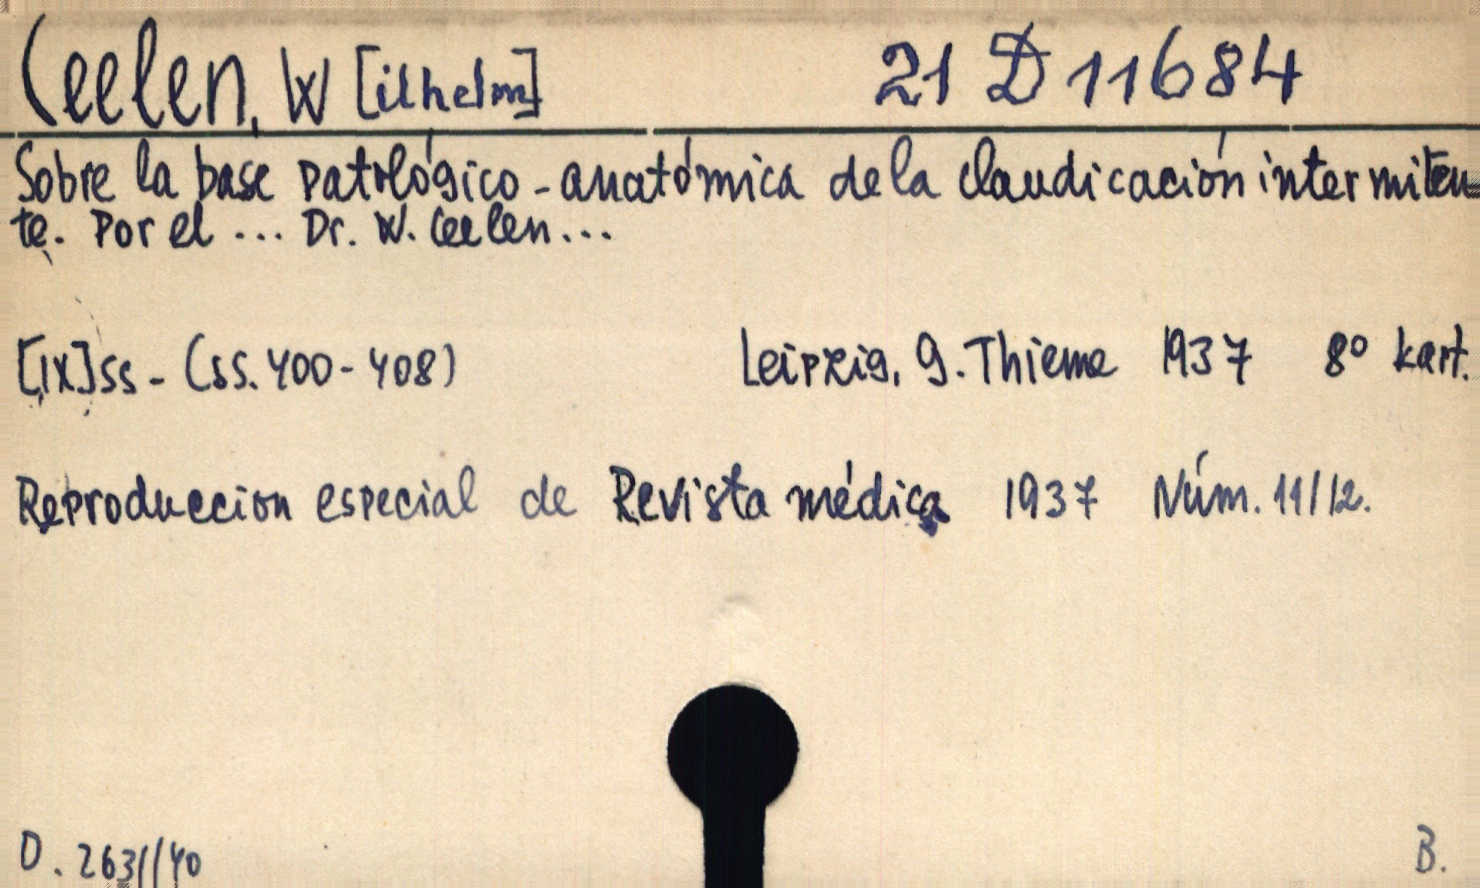 Ceelen, W [ilhelm] 21 D 11684
Sobre la base patológico-anatómica de la claudicación intermiten
te. Por el ... Dr. W. Ceelen...
[IX]ss - (ss. 400-408) Leipzig, G. Thieme 1937 8° kart.
Reproduccion especial de Revista médica 1937 Núm. 11/12.
D. 263//40 B.